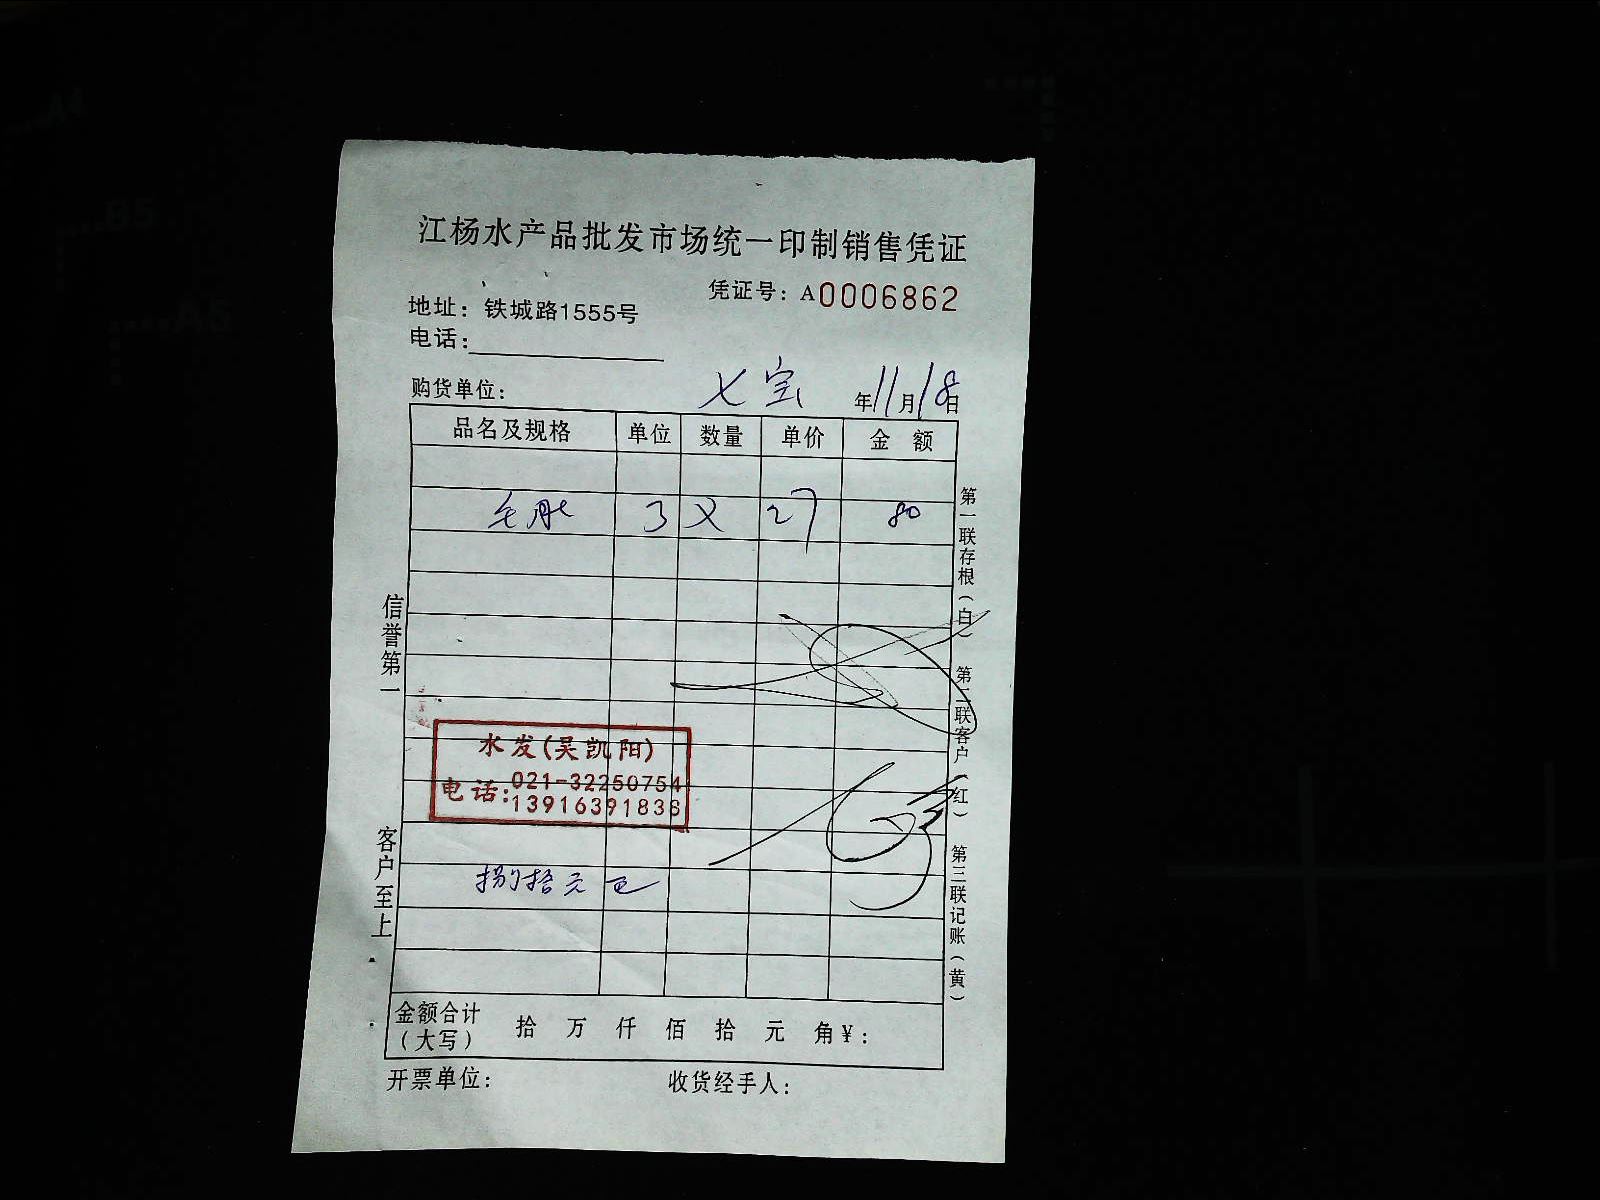 江杨水产品批发市场统一印制销售凭证
凭证号：A0006862
地址：铁城路1555号
电话：
购货单位： 七宝 年11月18日
品名及规格 单位 数量 单价 金额
毛肚 3 27 80
水发(吴凯阳)
电话：021-32250754
13916391838
捌拾元正
金额合计（大写） 拾 万 仟 佰 拾 元 角¥：
开票单位： 收货经手人：
信誉第一 客户至上
第一联存根（白） 第二联客户（红） 第三联记账（黄）
A4
B5
A5